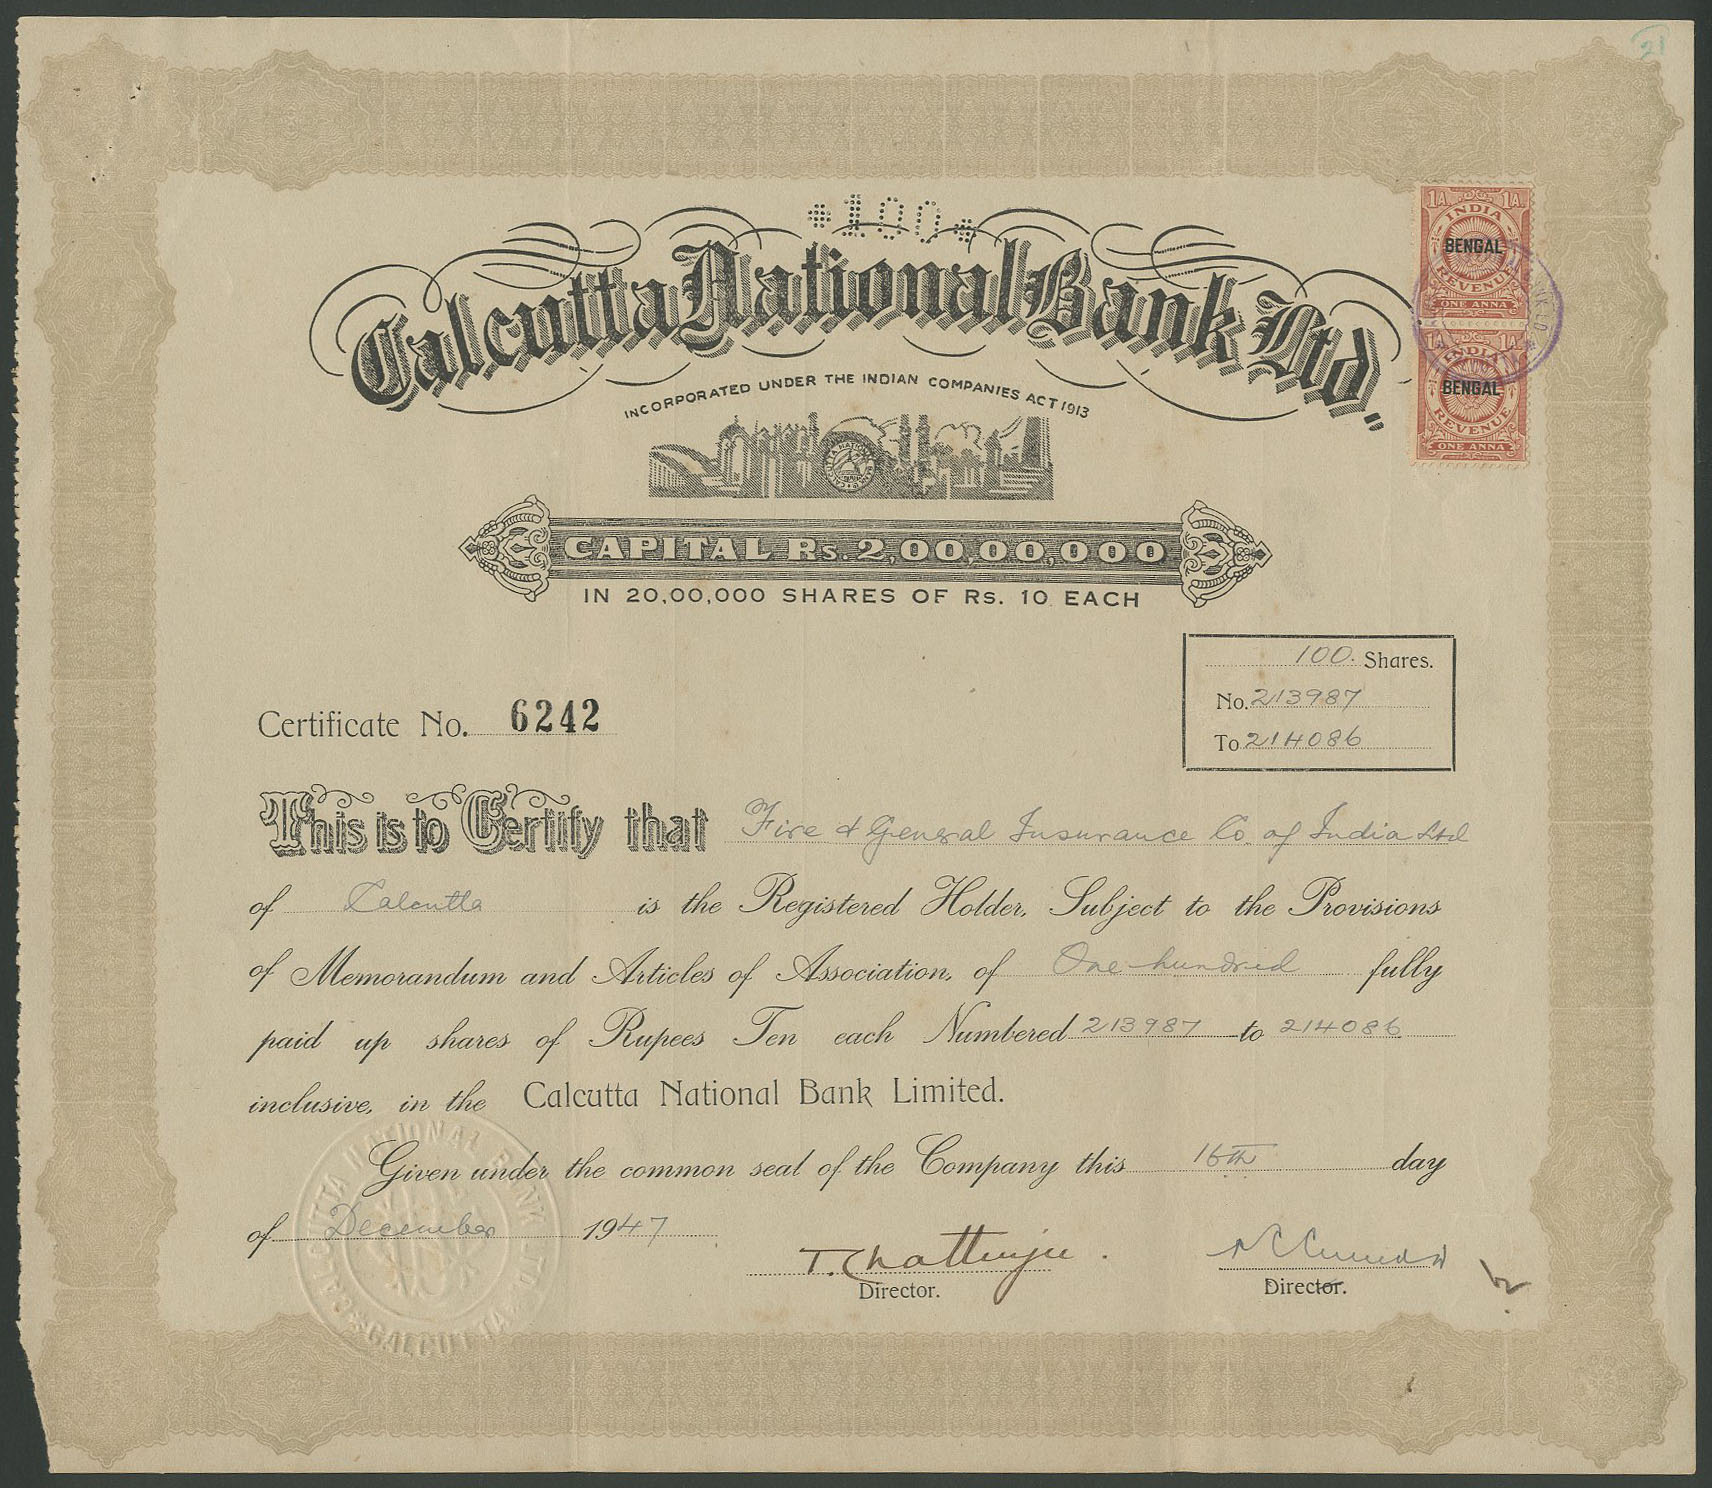 21
100
Calcutta National Bank Ltd.,
INCORPORATED UNDER THE INDIAN COMPANIES ACT 1913
CALCUTTA NATIONAL BANK
CAPITAL Rs. 2,00,00,000
IN 20,00,000 SHARES OF Rs. 10 EACH
1A 1A
INDIA
BENGAL
REVENUE
ONE ANNA
1A 1A
INDIA
BENGAL
REVENUE
ONE ANNA
100. Shares.
No. 213987
To 214086
Certificate No. 6242
This is to Certify that Fire & General Insurance Co. of India Ltd
of Calcutta is the Registered Holder, Subject to the Provisions
of Memorandum and Articles of Association, of One hundred fully
paid up shares of Rupees Ten each Numbered 213987 to 214086
inclusive, in the Calcutta National Bank Limited.
Given under the common seal of the Company this 16th day
of December 1947
T. Chatterjee.
Director. Director.
CALCUTTA NATIONAL BANK LTD.
CALCUTTA